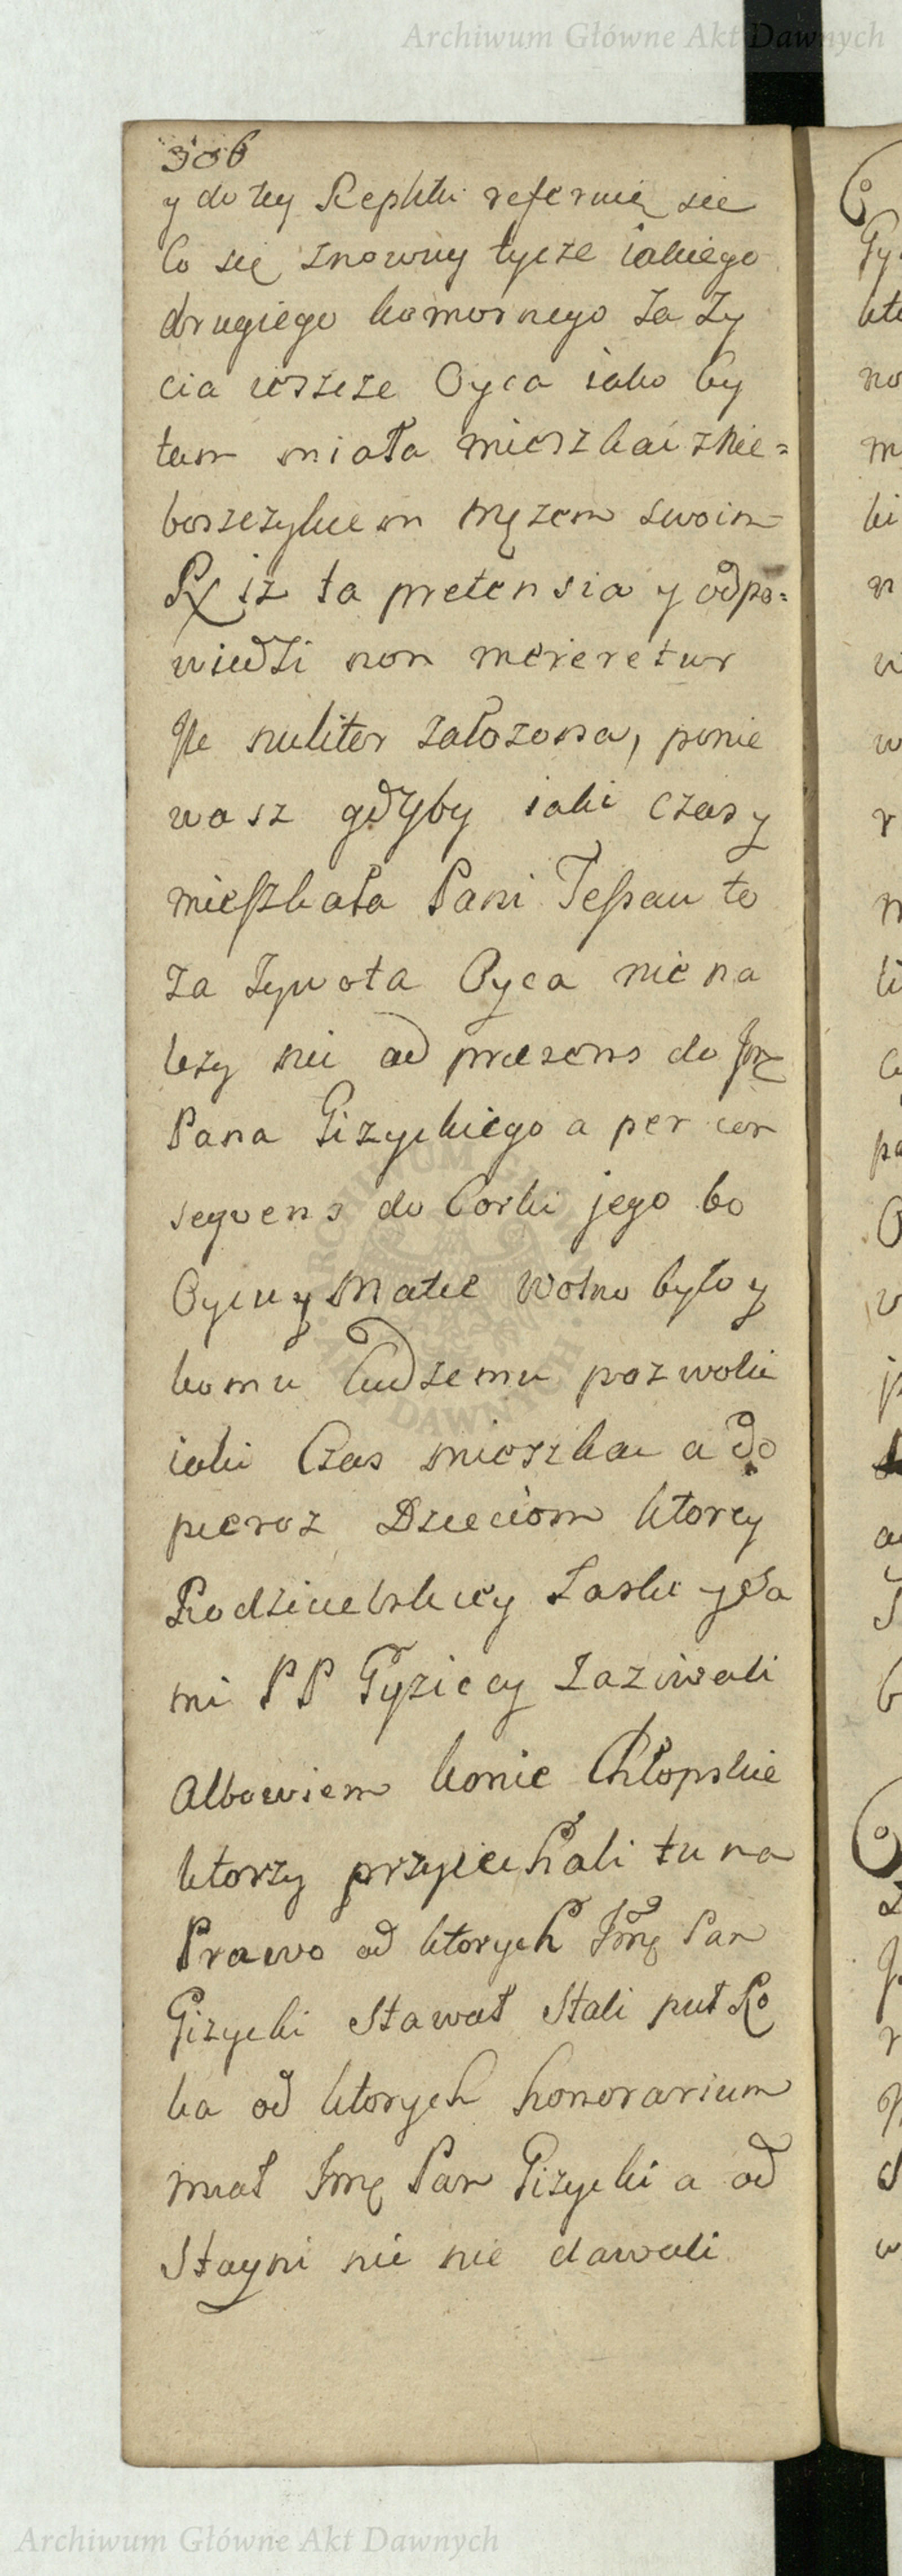 Archiwum Główne Akt Dawnych
306
y do tey Repliki referuię sie
Co się znowuy tycze iakiego
drugiego komornego Za Zy
cia ieszcze Oyca iako by
tam miała mieszkai znie=
boszczykiem mężem swoim
Rx iż ta pretensia y odpo=
wiedzi non mereretur
Ile nuliter założona, ponie
wasz gdyby iaki czas y
mieszkała Pani Tessau to
Za Zywota Oyca nic na
lezy nie ad praesens do Jmę
Pana Gizyckiego a per con
seqvens do Corki jego bo
Oycu y Matce Wolno było y
komu Cudzemu pozwolic
iaki Czas mieszkac a do
pieroz Dzieciom ktorey
Rodzicielskiey Łaski y Sa
mi PP Gyziccy Zazywali
Albowiem konie Chłopskie
ktorzy przyiechali tu na
Prawo od ktorych Jmę Pan
Gizycki Stawał Stali puł Ro
ka od ktorych honorarium
miał Jmę Pan Gizycki a od
Stayni nic nie dawali
Archiwum Główne Akt Dawnych